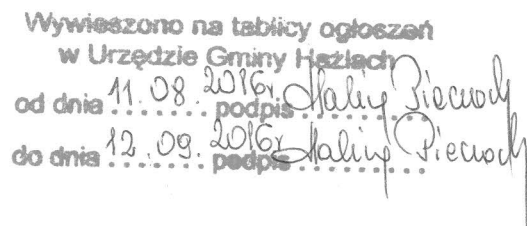 Wywieszono na tablicy ogłoszeń
w Urzędzie Gminy Hażlach
od dnia 11.08.2016r. podpis Halina Piechoch
do dnia 12.09.2016r. podpis Halina Piechoch